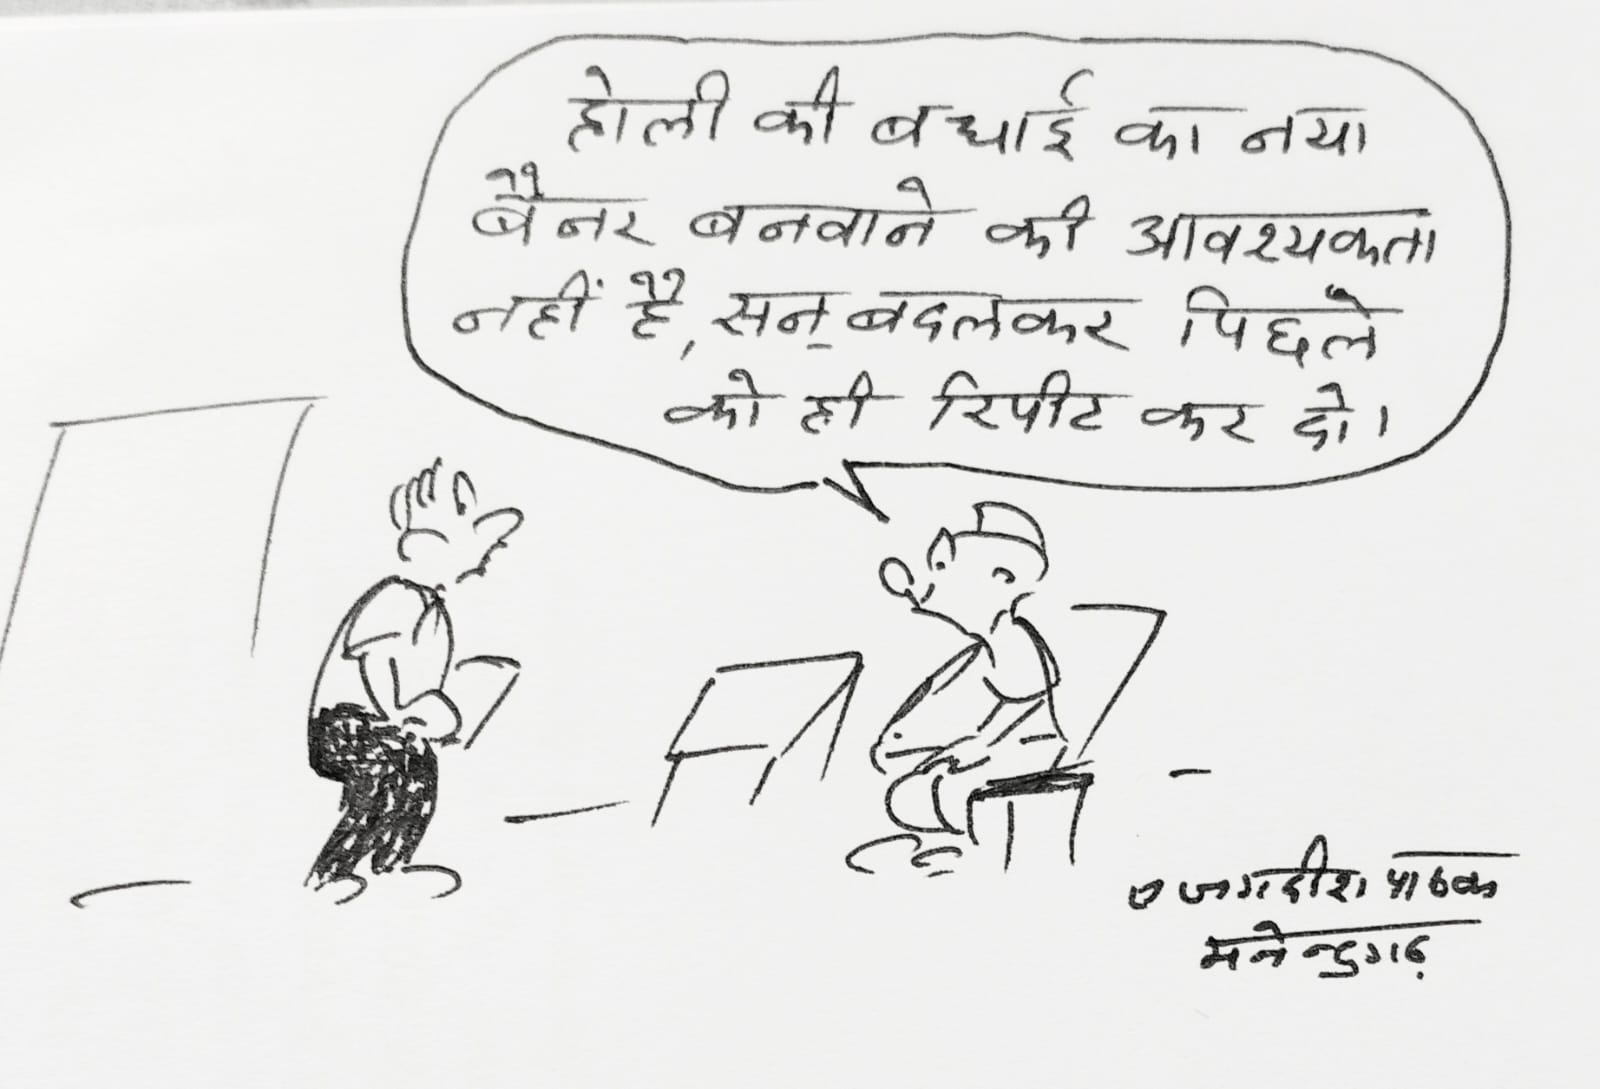 होली की बधाई का नया
बैनर बनवाने की आवश्यकता
नहीं है, सन् बदलकर पिछले
को ही रिपीट कर दो।
जगदीश पाठक
मनेन्द्रगढ़